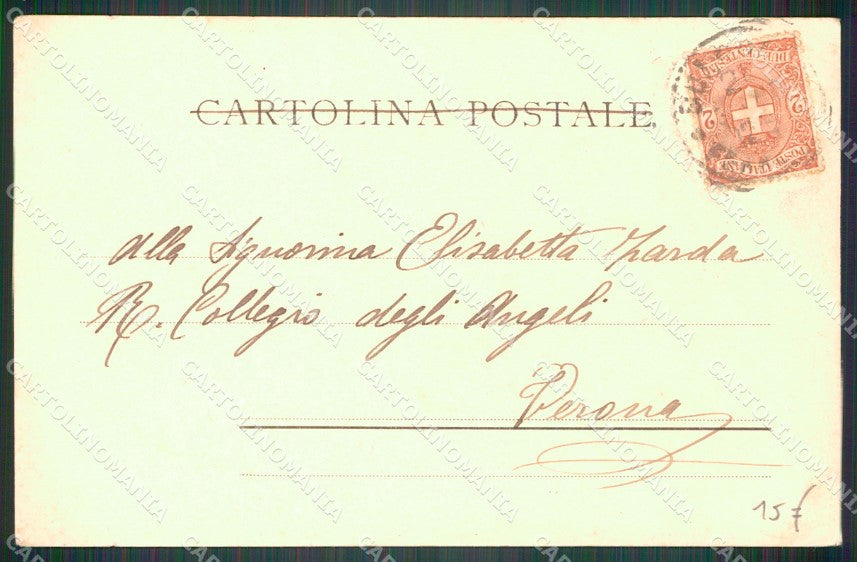 CARTOLINA POSTALE
DUE CENTESIMI
2 2
POSTE ITALIANE
alla Signorina Elisabetta Zarda
R. Collegio degli Angeli
Verona
15 f
CARTOLINOMANIA